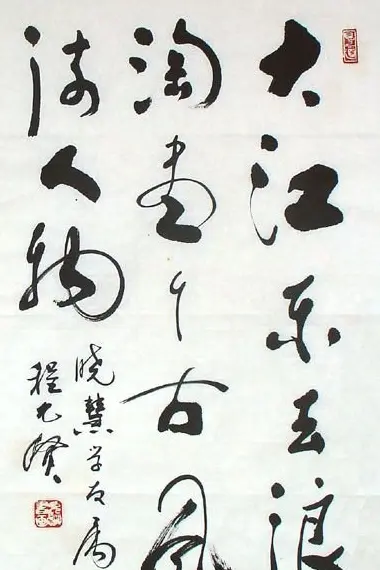 大江东去浪
淘尽千古风
流人物
晓慧学友属
程允贤